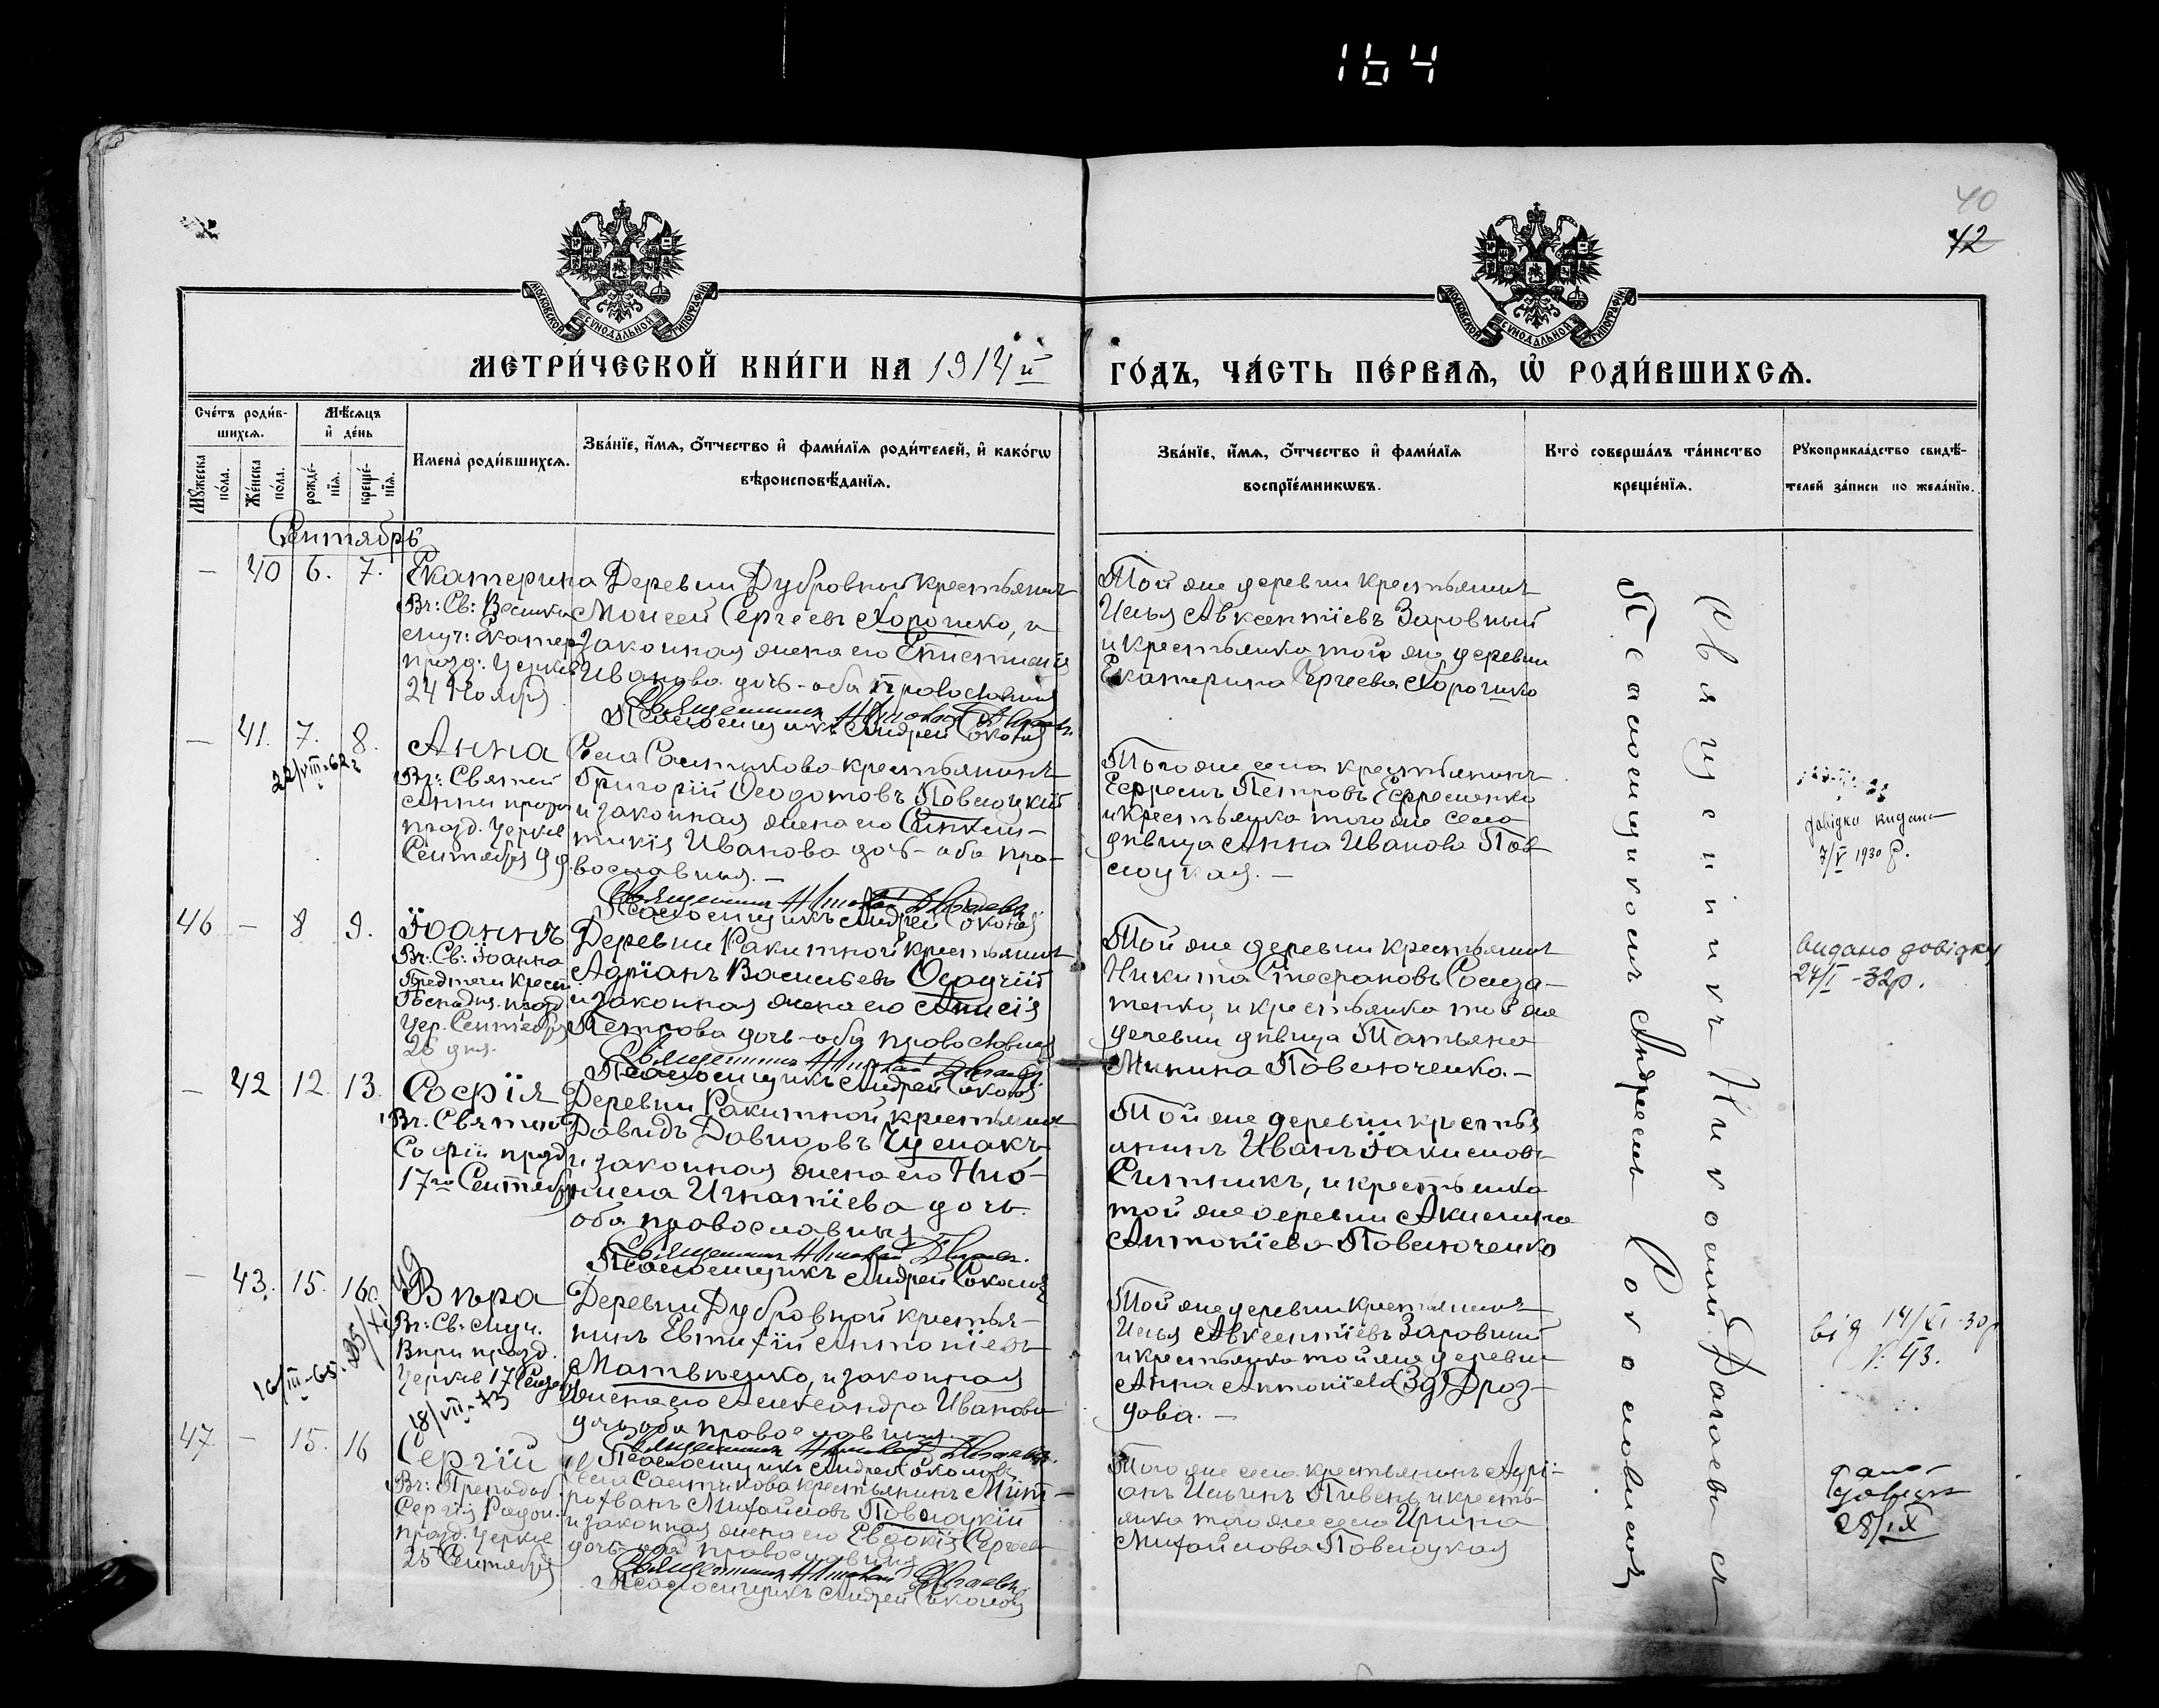 164
40
42
МОСКОВСКОЙ СѴНОДАЛЬНОЙ ТИПОГРАФІИ
МОСКОВСКОЙ СѴНОДАЛЬНОЙ ТИПОГРАФІИ
МЕТРИ́ЧЕСКОЙ КНИ́ГИ НА 1914й
ГО́ДЪ, ЧА́СТЬ ПЕ́РВАЯ, Ѡ РОДИ́ВШИХСЯ.
Сче́тъ роди́в-
шихся.
Мѣ́сяцъ
и де́нь
Му́жеска
по́ла.
Же́нска
по́ла.
рожде́-
нїя.
креще́-
нїя.
Имена̀ роди́вшихся.
Зва́нїе, и́мя, ѻ́тчество и фами́лїя роди́телей, и како́гѡ
вѣроисповѣ́данїя.
Зва́нїе, и́мя, ѻ́тчество и фами́лїя
воспрїе́мникѡвъ.
Кто̀ соверша́лъ та́инство
креще́нїя.
Рукоприкла́дство свидѣ́-
телей за́писи по жела́нїю.
Сентябрь
— 40 6. 7. Екатерина
Вч: Св: Велико
муч: Екатер
празд: Церков
24 Ноября
Деревни Дубровной крестьянинъ
Моисей Сергеевъ Хорошко, и
законная жена его Епистимія
Иванова дочь - оба православныя
Священникъ Николай
Псаломщикъ Андрей Соколов
Той же деревни крестьянинъ
Илья Авксентіевъ Заровный
и крестьянка той же деревни
Екатерина Сергеева Хорошко
— 41. 7. 8. Анна
22/VIII-62 г
Вч: Святой
Анны прор
празд. Церков
Сентября 9 д.
Села Салтыкова крестьянинъ
Григорій Ѳеодотовъ Повлоцкій
и законная жена его Синкли-
тикія Иванова дочь - оба пра-
вославныя. —
Священникъ Николай
Псаломщикъ Андрей Соколов
Того же села крестьянинъ
Ефремъ Петровъ Ефременко
и крестьянка того же села
дѣвица Анна Иванова Пов
лоцкая. —
довідка видана
7/V 1930 р.
46 — 8 9. Іоаннъ
Вч: Св: Іоанна
Предтечи Крест.
Господня. празд
Цер. Сентября
26 дня.
Деревни Ракитной крестьянинъ
Адріанъ Васильевъ Осадчій
и законная жена его Анисія
Петрова дочь - оба православныя
Священникъ Николай
Псаломщикъ Андрей Соколов
Той же деревни крестьянинъ
Никита Стефановъ Солда-
тенко, и крестьянка той же
деревни дѣвица Татьяна
Минина Повлюченко. —
видано довідку
27/I -32р.
— 42 12. 13. Софія
Вч. Святой
Софіи празд
17го Сентября
Деревни Ракитной крестьянинъ
Давидъ Давидовъ Чумакъ
и законная жена его Нио-
нила Игнатіева дочь
оба православныя
Священникъ Николай
Псаломщикъ Андрей Соколов
Той же деревни крестья
нинъ Иванъ Іакимовъ
Ситникъ, и крестьянка
той же деревни Акилина
Антоніева Повлюченко
— 43. 15. 16. Вѣра
Вч: Св: Муч.
Вѣри празд.
Церков 17 Сентяб
16/III-65.
18/VII-73
Деревни Дубровной крестья-
нинъ Евтихій Антоніевъ
Матвѣенко, и законная
жена его Александра Иванова
дочь оба православныя.
Священникъ Николай
Псаломщикъ Андрей Соколов
Той же деревни крестьянинъ
Илья Авксентіевъ Заровный
и крестьянка той же деревни
Анна Антоніева Дроз-
дова. —
від 14/XI-30р
№ 43.
47 — 15. 16 Сергій
Вч: Преподоб.
Сергія Радон.
празд. Церков
25 Сентября
Села Салтыкова крестьянинъ Мит-
рофанъ Михайловъ Повлоцкій
и законная жена его Евдокія Сергеева
дочь - оба православныя
Священникъ Николай
Псаломщикъ Андрей Соколов
Того же села крестьянинъ Адрі-
анъ Ильинъ Пивень и кресть-
янка того же села Ирина
Михайлова Повлоцкая
28/IX
Священникъ Николай
Псаломщикомъ Андреемъ Соколовимъ